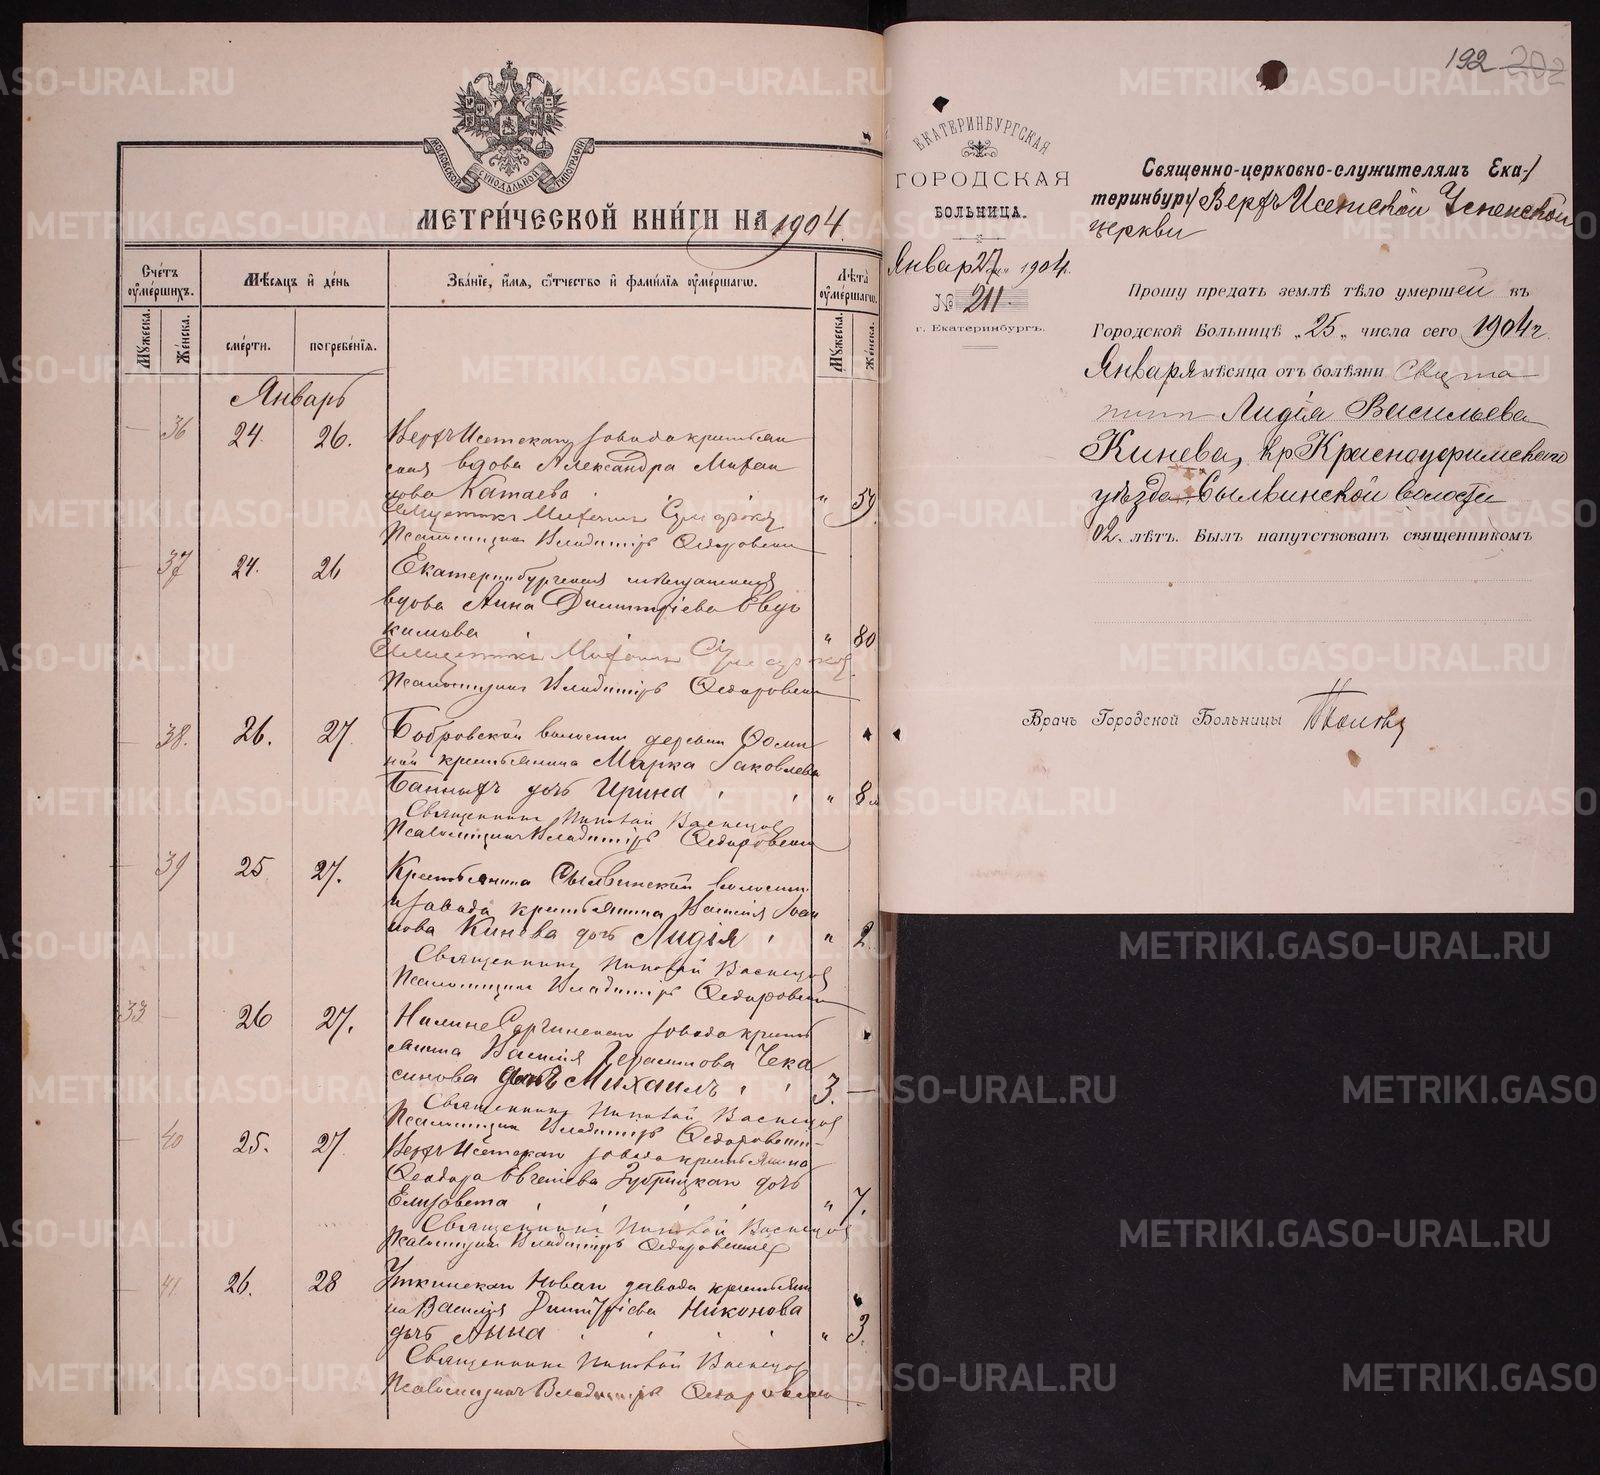 МОСКОВСКОЙ СѴНОДАЛЬНОЙ ТИПОГРАФІИ
МЕТРИ́ЧЕСКОЙ КНИ́ГИ НА 1904.
Сче́тъ ᲂумершихъ.
Мѣ́сяцъ и҆ де́нь
Зва́нїе, и҆́мя, ѻ҆́тчество и҆ фами́лїя ᲂумершагѡ.
Лѣ́та ᲂумершагѡ.
Мꙋжеска.
Же́нска.
сме́рти.
погребе́нїя.
Мꙋжеска.
Же́нска.
Январь
— 36 24. 26. Верхъ Исетскаго завода крестьян
ская вдова Александра Михаи
лова Катаева " 59.
Псаломщикъ Владимiръ Ѳедоровскiй
— 37 24. 26 Екатеринбургская мѣщанская
вдова Анна Димитрiева Евдо
кимова " 80
Псаломщикъ Владимiръ Ѳедоровскiй
— 38. 26. 27 Бобровской волости деревни Ѳоми
ной крестьянина Марка Iаковлева
дочь Ирина " 8 м
Священникъ Николай Васнецов
Псаломщикъ Владимiръ Ѳедоровскiй
— 39 25 27. Крестьянина Сылвинской волости
и завода крестьянина Василiя Iоан
нова Кинева дочь Лидiя " 2.
Священникъ Николай Васнецов
Псаломщикъ Владимiръ Ѳедоровскiй
33 — 26 27. Нижне Сергинскаго завода кресть
янина Василiя Герасимова Чека
синова сынъ Михаилъ 3. —
Священникъ Николай Васнецов
Псаломщикъ Владимiръ Ѳедоровскiй
— 40 25. 27 Верхъ Исетскаго завода крестьянина
Ѳеодора Евгенiева Зубрицкаго дочь
Елизавета " 7.
Священникъ Николай Васнецов
Псаломщикъ Владимiръ Ѳедоровскiй
— 41. 26. 28 Уткинскаго Новаго завода крестьяни
на Василiя Димитрiева Никонова
дочь Анна " 3.
Священникъ Николай Васнецов
Псаломщикъ Владимiръ Ѳедоровскiй
192 202
ЕКАТЕРИНБУРГСКАЯ
ГОРОДСКАЯ
БОЛЬНИЦА.
Январ 27 дня 1904.
№ 211.
г. Екатеринбургъ.
Священно-церковно-служителямъ Ека-
теринбург Верхъ Исетской Успенской
церкви
Прошу предать землѣ тѣло умершей въ
Городской Больницѣ „25„ числа сего 1904 г.
Января мѣсяца отъ болѣзни
Лидiя Васильева
Кинева, кр. Красноуфимскаго
уѣзда Сылвинской волости
02. лѣтъ. Былъ напутствованъ священникомъ
Врачъ Городской Больницы
METRIKI.GASO-URAL.RU